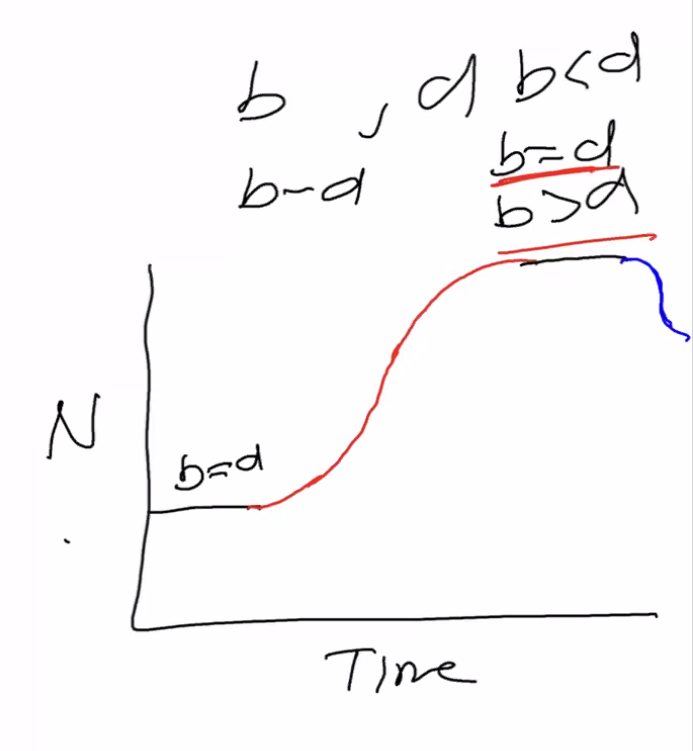 b , d b<d
b=d
b-d
b>d
b=d
N
Time